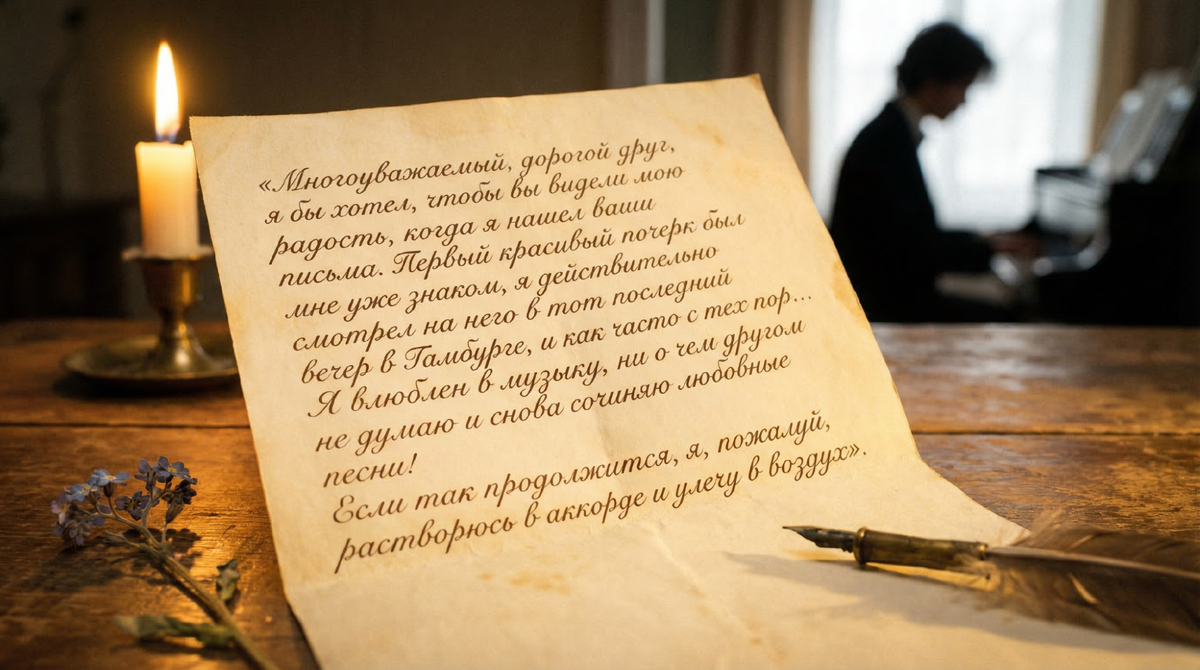 «Многоуважаемый, дорогой друг,
я бы хотел, чтобы вы видели мою
радость, когда я нашел ваши
письма. Первый красивый почерк был
мне уже знаком, я действительно
смотрел на него в тот последний
вечер в Гамбурге, и как часто с тех пор...
Я влюблен в музыку, ни о чем другом
не думаю и снова сочиняю любовные
песни!
Если так продолжится, я, пожалуй,
растворюсь в аккорде и улечу в воздух».